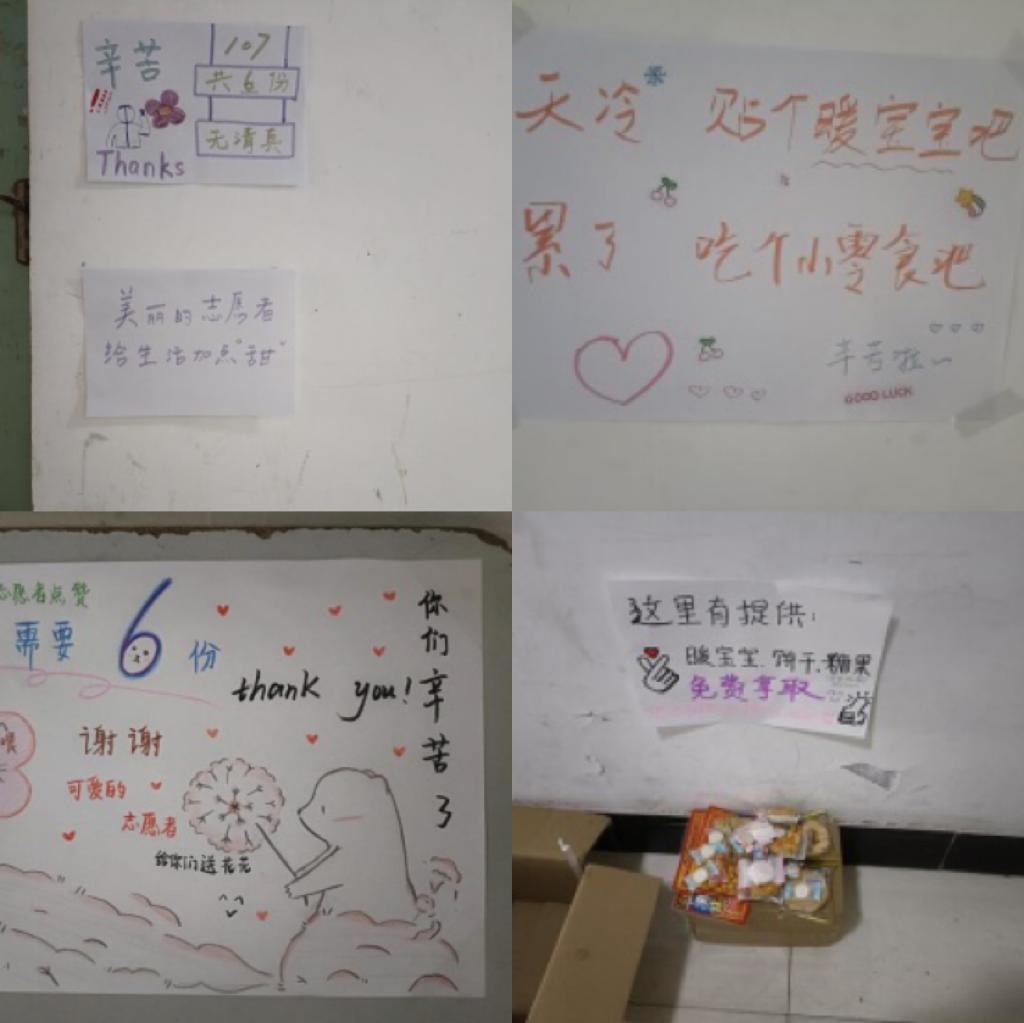 辛苦
107
共6份
无清真
!!!
Thanks
美丽的志愿者
给生活加点"甜"
天冷 贴个暖宝宝吧
累了 吃个小零食吧
辛苦啦~
GOOD LUCK
志愿者点赞
需要6份
thank you!
你们辛苦了
谢谢
可爱的
志愿者
给你们送花花
这里有提供:
暖宝宝、饼干、糖果
免费享取